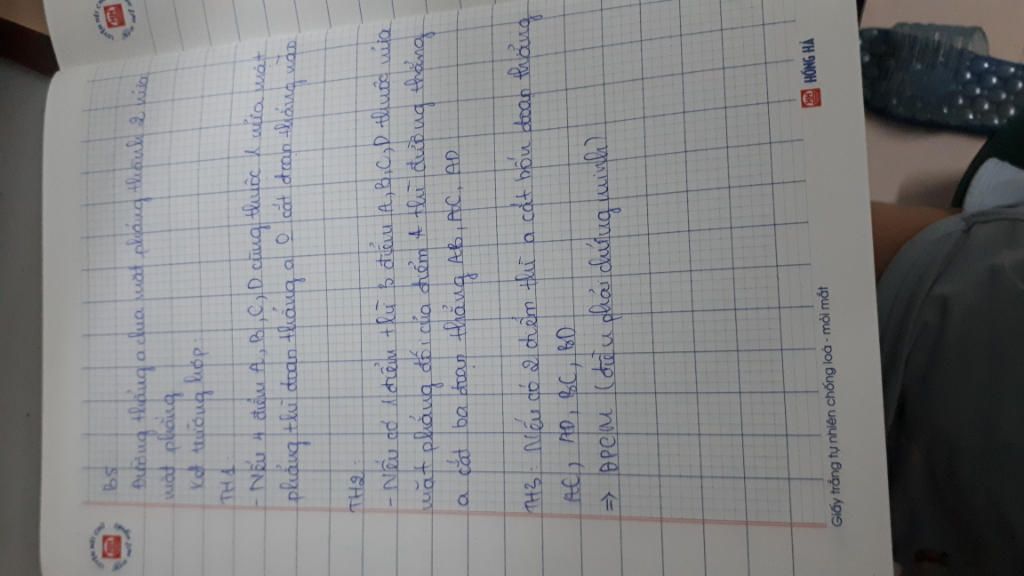 B5
Đường thẳng a chưa mặt phẳng thành 2 nửa
mặt phẳng
Xét trường hợp.
TH1:
- Nếu 4 điểm A, B, C, D cùng thuộc 1 nửa mặt
phẳng thì đoạn thẳng a 0 cắt đoạn thẳng nào
TH2:
- Nếu có 1 điểm thì 3 điểm A, B, C, D thuộc nửa
mặt phẳng đối của điểm A thì đường thẳng
a cắt ba đoạn thẳng AB, AC, AD
TH3: Nếu có 2 điểm thì a cắt bốn đoạn thẳng
AC, AD, BC, BD
=> ĐPCM (điều phải chứng minh)
Giấy trắng tự nhiên chống loá - mỏi mắt
HỒNG HÀ